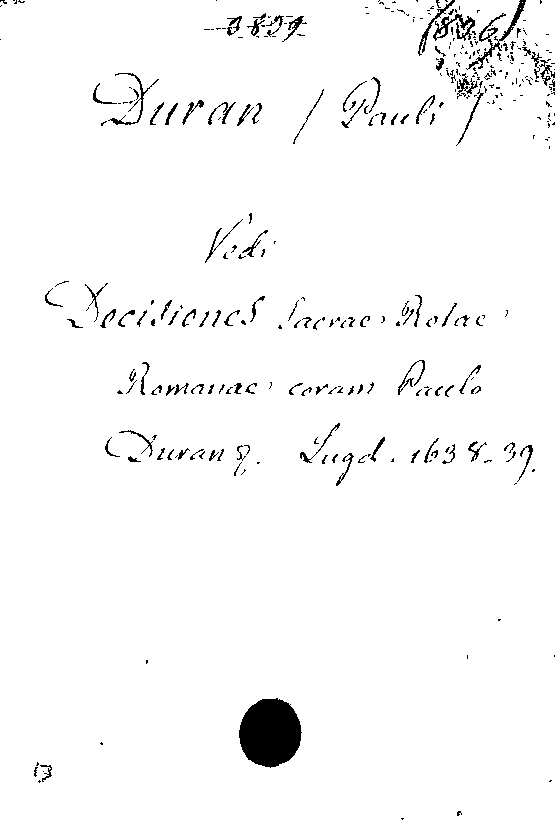 Duran (Pauli)
Vedi
Decisiones Sacrae Rotae
Romanae coram Paulo
Duran &. Lugd. 1638-39.